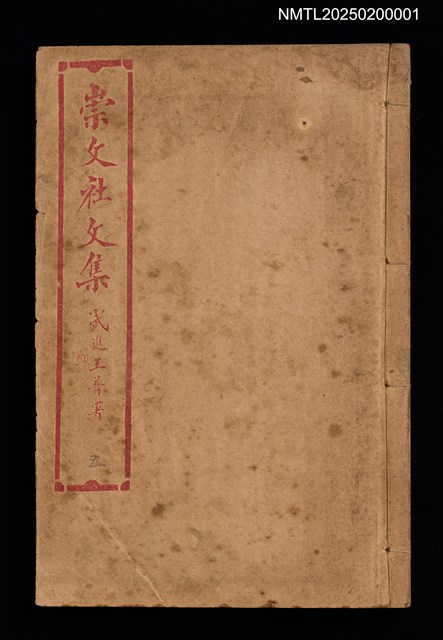 NMTL20250200001
崇文社文集
武進王華署
五